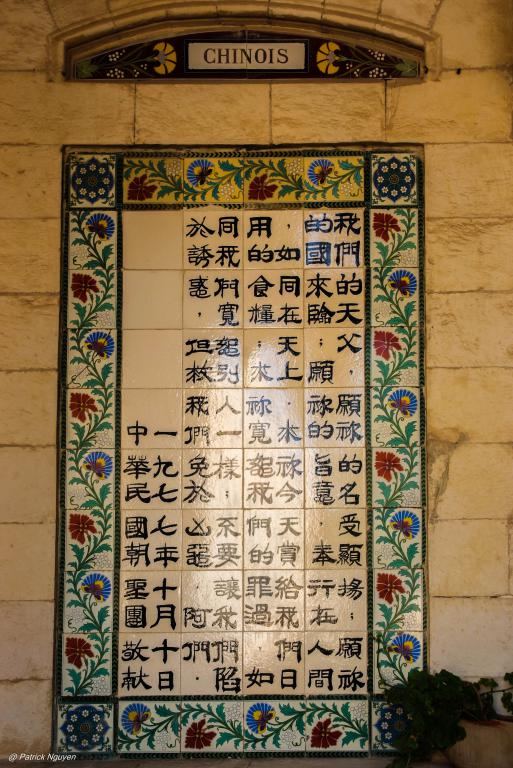 CHINOIS
我們的天父，願祢的名受顯揚；願祢
的國來臨；願祢的旨意，奉行在人間
，如同在天上．求祢今天賞給我們日
用的食糧；求祢寬恕我們的罪過，如
同我們寬恕別人一樣；不要讓我們陷
於誘惑，但救我們免於凶惡．阿們．
一九七七年十月十日
中華民國朝聖團敬獻
@ Patrick Nguyen